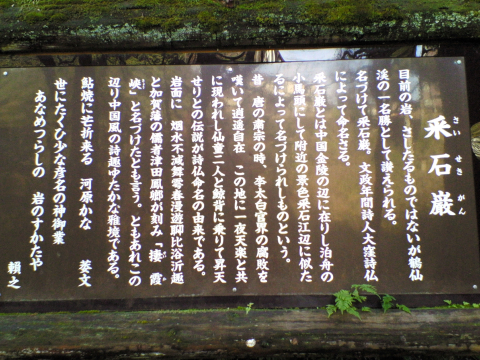 采石巌
さいせきがん
目前の岩、さしたるものではないが鶴仙
渓の一名勝として讃えられる。
名づけて采石巌。文政年間詩人大窪詩仏
によって命名さる。
采石巌とは中国金陵の辺に在りし泊舟の
小馬頭にして附近の景色采石江辺に似た
るによって名づけられしものという。
昔 唐の粛宗の時、李太白官界の腐敗を
嘆いて逍遥自在 この地に一夜天楽と共
に現われし仙童二人と鯨背に乗りて昇天
せりとの伝説が詩仏命名の由来である。
岩面に 烟水不減舞雩春漫遊聊比浴沂趣
と加賀藩の儒者津田鳳郷が刻み「棲霞
峡」と名づけたとも言う。ともあれこの
辺り中国風の詩趣ゆたかな雅境である。
鮎焼に芒折来る 河原かな 菱文
世にたぐひ少な彦名の神御業
あなめづらしの 岩のすかたや
頼之